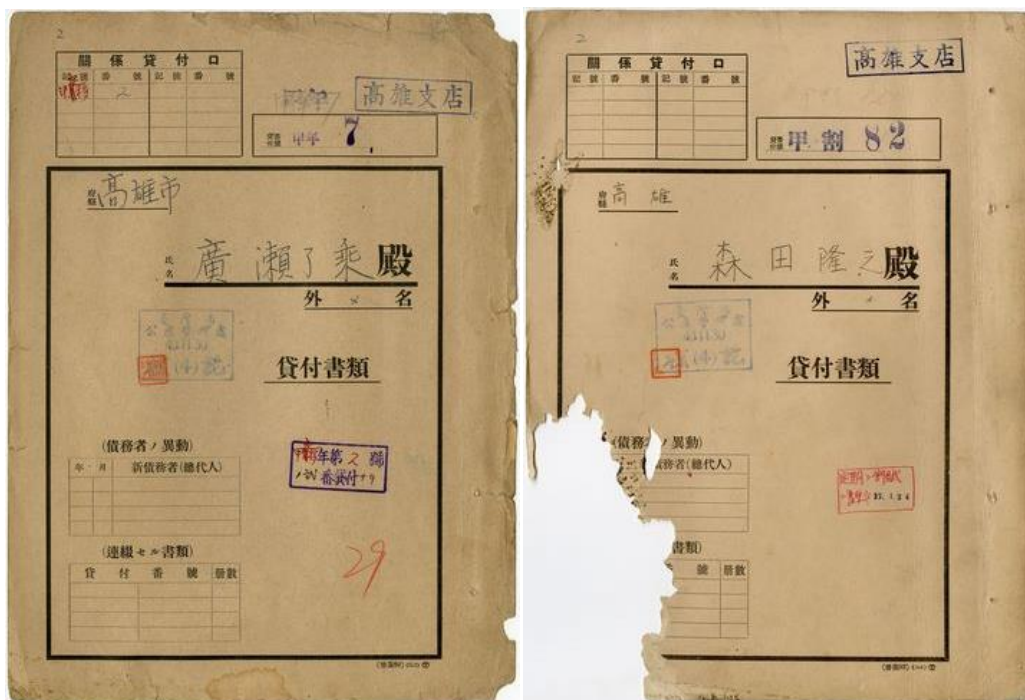 2
關係貸付口
記號 番號 記號 番號
2
高雄支店
甲年 7
府縣 高雄市
氏名 廣瀬了乘殿
外 名
貸付書類
(債務者ノ異動)
年・月 新債務者(總代人)
年第2號
番貸付
(連綴セル書類)
貸付番號 冊數
29
2
關係貸付口
記號 番號 記號 番號
高雄支店
甲割 82
府縣 高雄
氏名 森田隆之殿
外 名
貸付書類
(債務者ノ異動)
債務者(總代人)
書類)
號 冊數